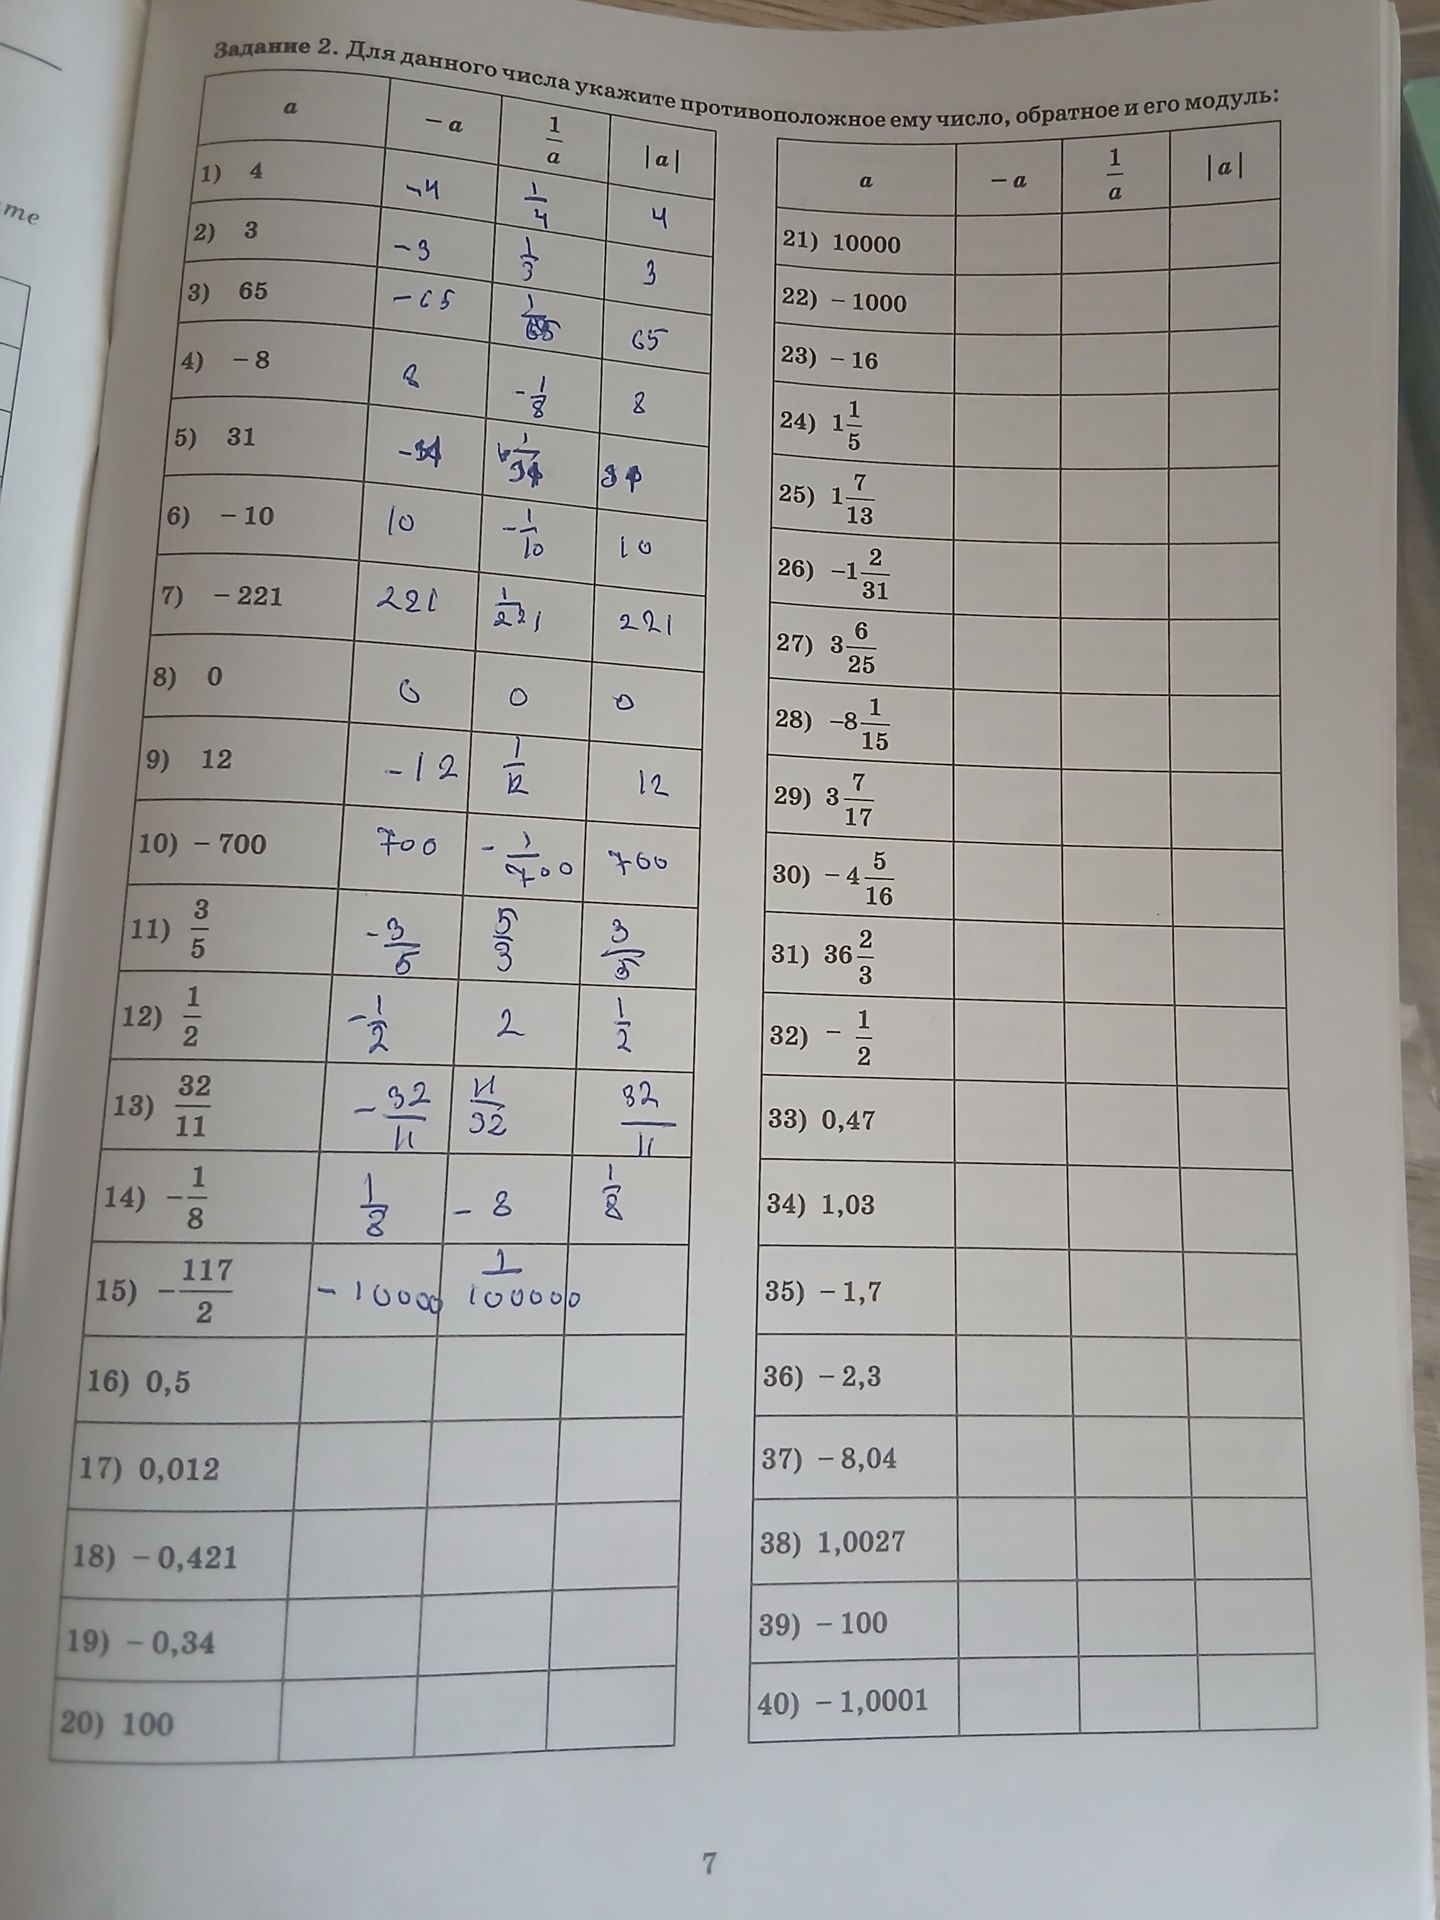 те
Задание 2. Для данного числа укажите противоположное ему число, обратное и его модуль:
a −a 1/a |a|
1) 4 -4 1/4 4
2) 3 -3 1/3 3
3) 65 -65 1/65 65
4) −8 8 -1/8 8
5) 31 -31 1/31 31
6) −10 10 -1/10 10
7) −221 221 1/221 221
8) 0 0 0 0
9) 12 -12 1/12 12
10) −700 700 -1/700 700
11) 3/5 -3/5 5/3 3/5
12) 1/2 -1/2 2 1/2
13) 32/11 -32/11 11/32 32/11
14) −1/8 1/8 -8 1/8
15) −117/2 -10000 1/100000
16) 0,5
17) 0,012
18) −0,421
19) −0,34
20) 100
a −a 1/a |a|
21) 10000
22) −1000
23) −16
24) 1 1/5
25) 1 7/13
26) −1 2/31
27) 3 6/25
28) −8 1/15
29) 3 7/17
30) −4 5/16
31) 36 2/3
32) −1/2
33) 0,47
34) 1,03
35) −1,7
36) −2,3
37) −8,04
38) 1,0027
39) −100
40) −1,0001
7